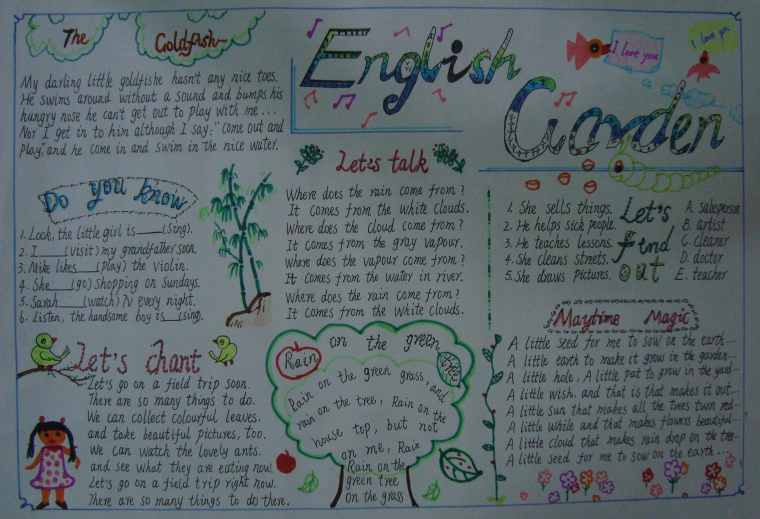 The Goldfish
My darling little goldfishe hasn't any nice toes.
He swims around without a sound and bumps his
hungry nose he can't get out to play with me ...
Nor I get in to him although I say: "Come out and
Play," and he come in and swim in the nice water.
English
Garden
I love you
I love you
Do you know
1. Look, the little girl is ____ (sing).
2. I ____ (visit) my grandfather soon.
3. Mike likes ____ (play) the violin.
4. She ____ (go) shopping on Sundays.
5. Sarah ____ (watch) TV every night.
6. Listen, the handsome boy is ____ (sing).
Let's talk
Where does the rain come from?
It comes from the white clouds.
Where does the cloud come from?
It comes from the gray vapour.
Where does the vapour come from?
It comes from the water in river.
Where does the rain come from?
It comes from the white clouds.
Let's find out
1. She sells things.
2. He helps sick people.
3. He teaches lessons.
4. She cleans streets.
5. She draws pictures.
A. salesperson
B. artist
C. cleaner
D. doctor
E. teacher
Let's chant
Let's go on a field trip soon.
There are so many things to do.
We can collect colourful leaves.
and take beautiful pictures, too.
We can watch the lovely ants.
and see what they are eating now.
Let's go on a field trip right now.
There are so many things to do there.
Rain on the green
Rain on the green grass, and
rain on the tree, Rain on the
house top, but not
on me, Rain
Rain on the
green tree
On the grass
Maytime Magic
A little seed for me to sow on the earth ...
A little earth to make it grow in the garden...
A little hole, A little pat to grow in the yard ...
A little wish, and that is that makes it out...
A little sun that makes all the trees turn red...
A little while and that makes flowers beautiful...
A little cloud that makes rain drop on the tree...
A little seed for me to sow on the earth ...